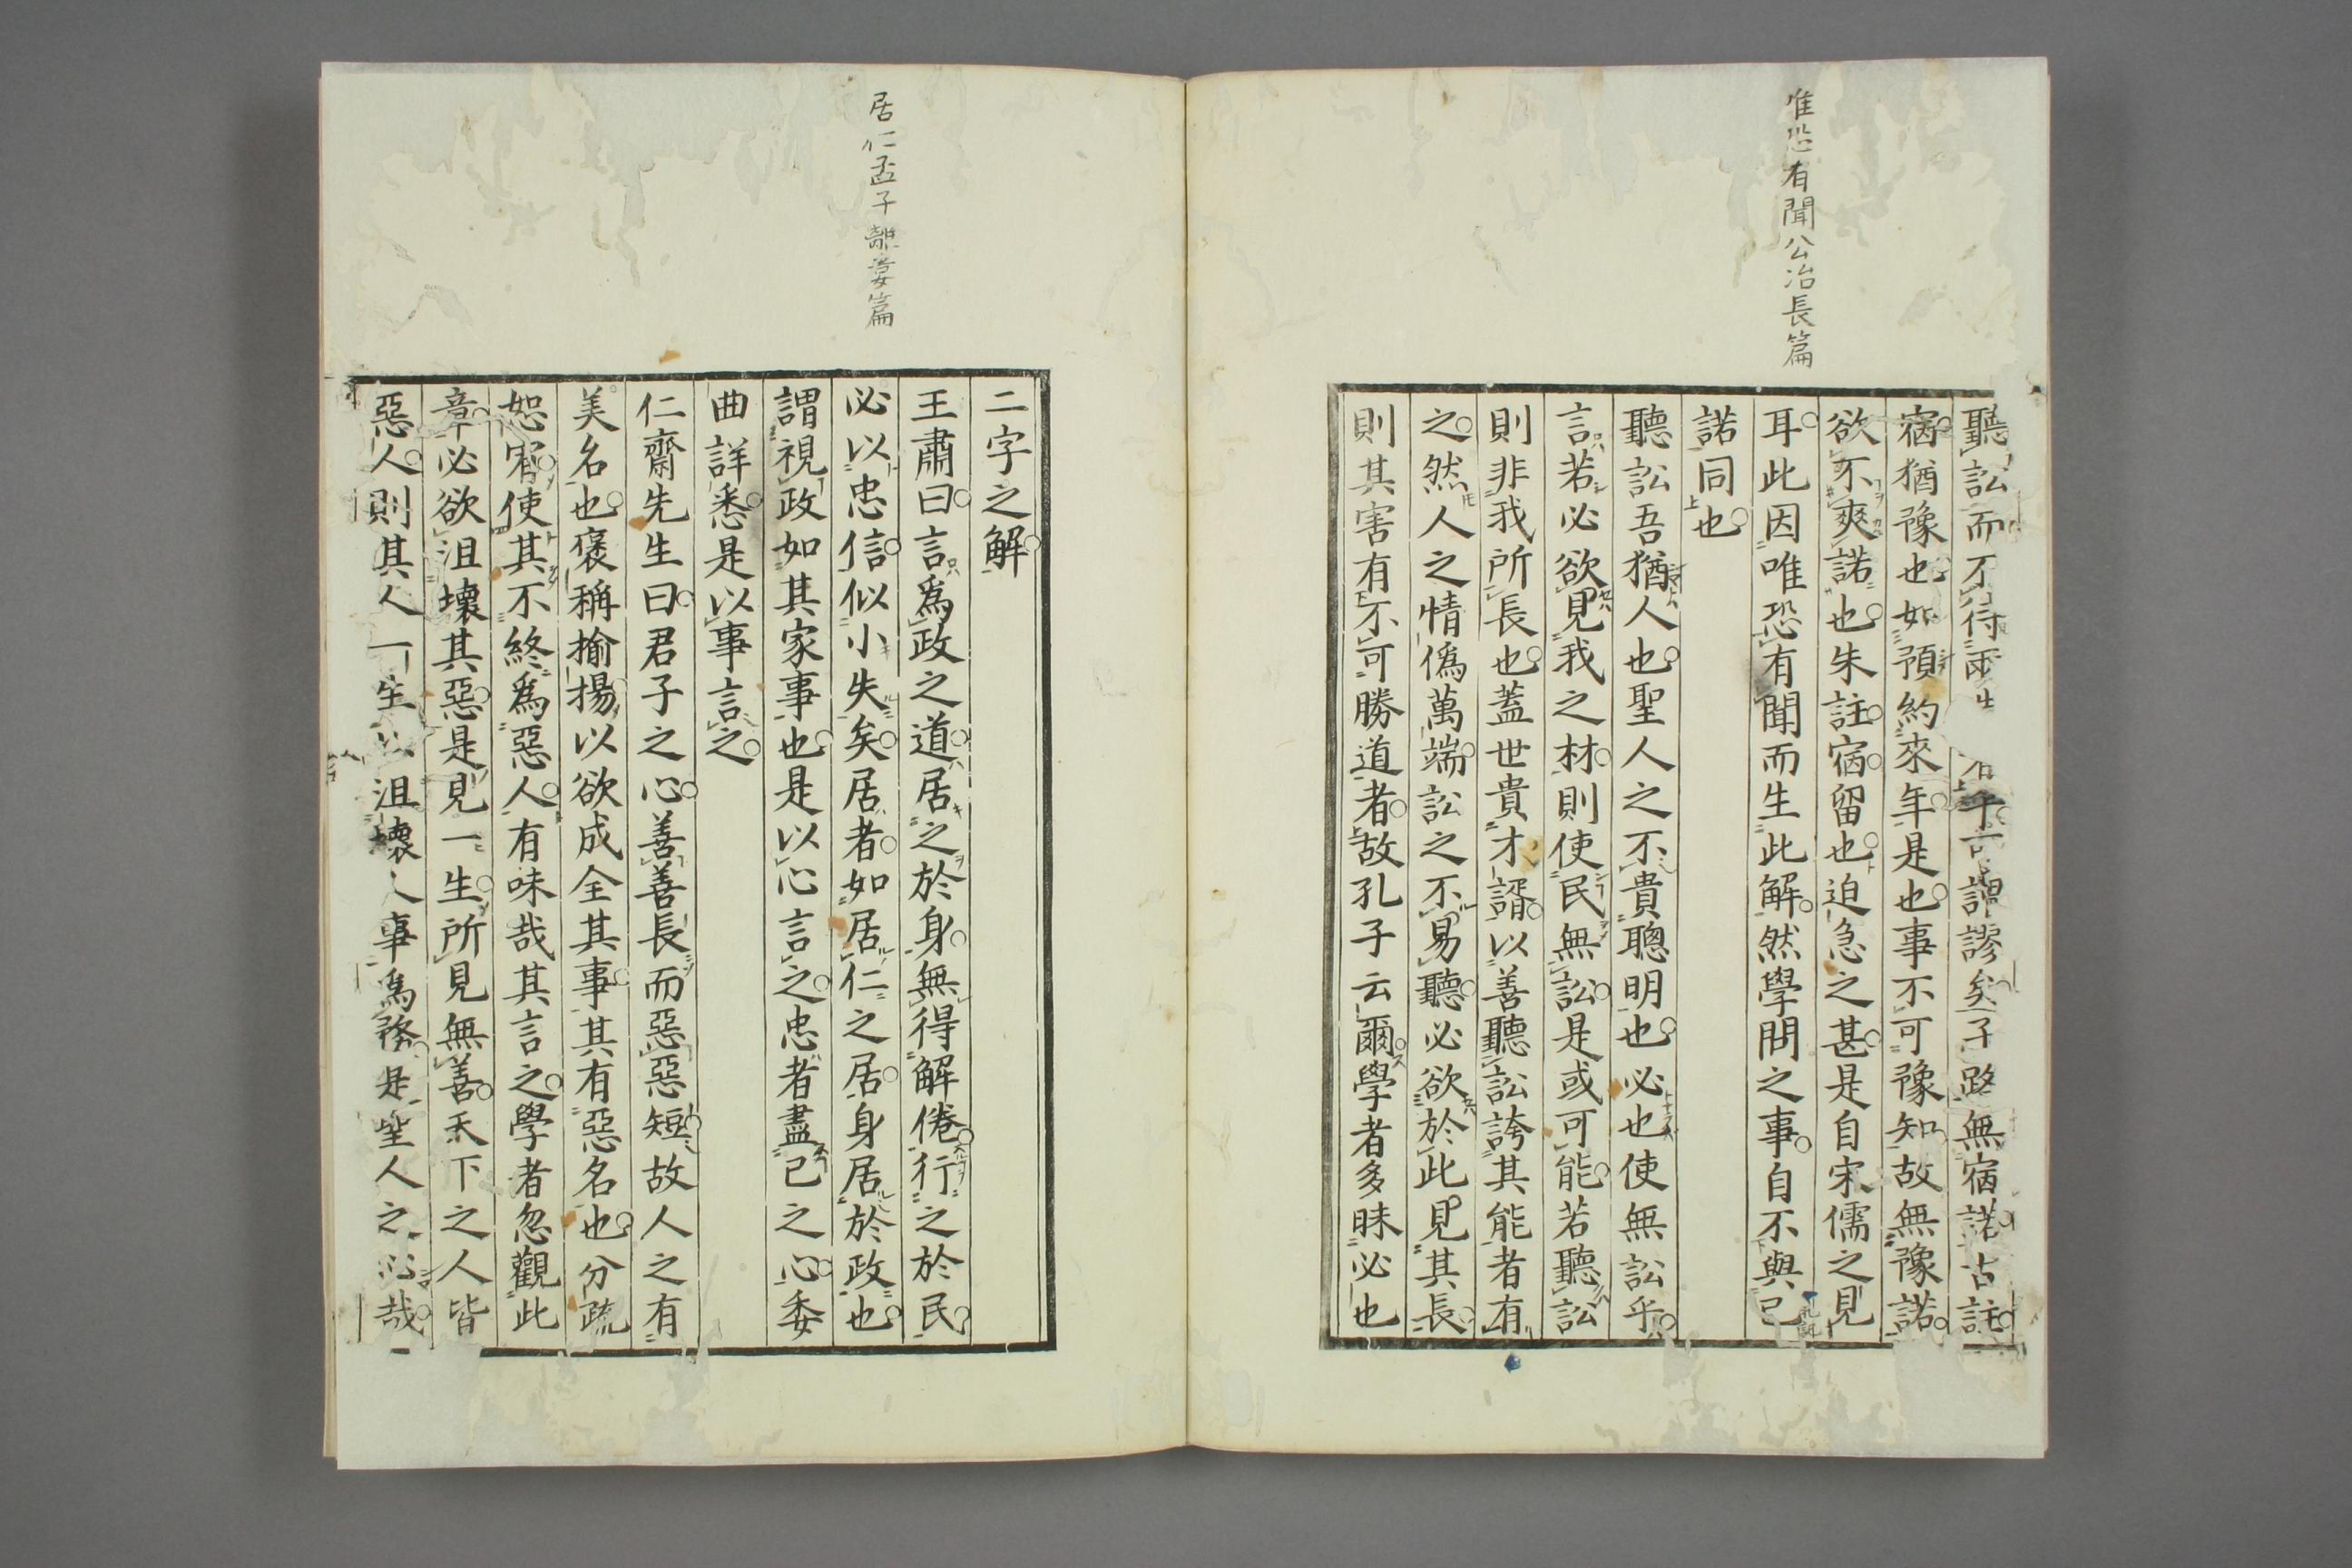 唯恐有聞公冶長篇
聽訟而不待兩 可謂謬矣子路無宿諾古註
宿猶豫也如預約來年是也事不可豫知故無豫諾
欲不爽諾也朱註宿留也迫急之甚是自宋儒之見
耳此因唯恐有聞而生此解然學問之事自不與已
諾同也
聽訟吾猶人也聖人之不貴聰明也必也使無訟乎
言若必欲見我之材則使民無訟是或可能若聽訟
則非我所長也蓋世貴才諝以善聽訟誇其能者有
之然人之情僞萬端訟之不易聽必欲於此見其長
則其害有不可勝道者故孔子云爾學者多昧必也
居仁孟子離婁篇
二字之解
王肅曰言爲政之道居之於身無得解倦行之於民
必以忠信似小失矣居者如居仁之居身居於政也
謂視政如其家事也是以心言之忠者盡已之心委
曲詳悉是以事言之
仁齋先生曰君子之心善善長而惡惡短故人之有
美名也褒稱揄揚以欲成全其事其有惡名也分疏
恕宥使其不終爲惡人有味哉其言之學者忽觀此
章必欲沮壞其惡是見一生所見無善天下之人皆
惡人則其人一生以沮壞人事爲務是聖人之心哉